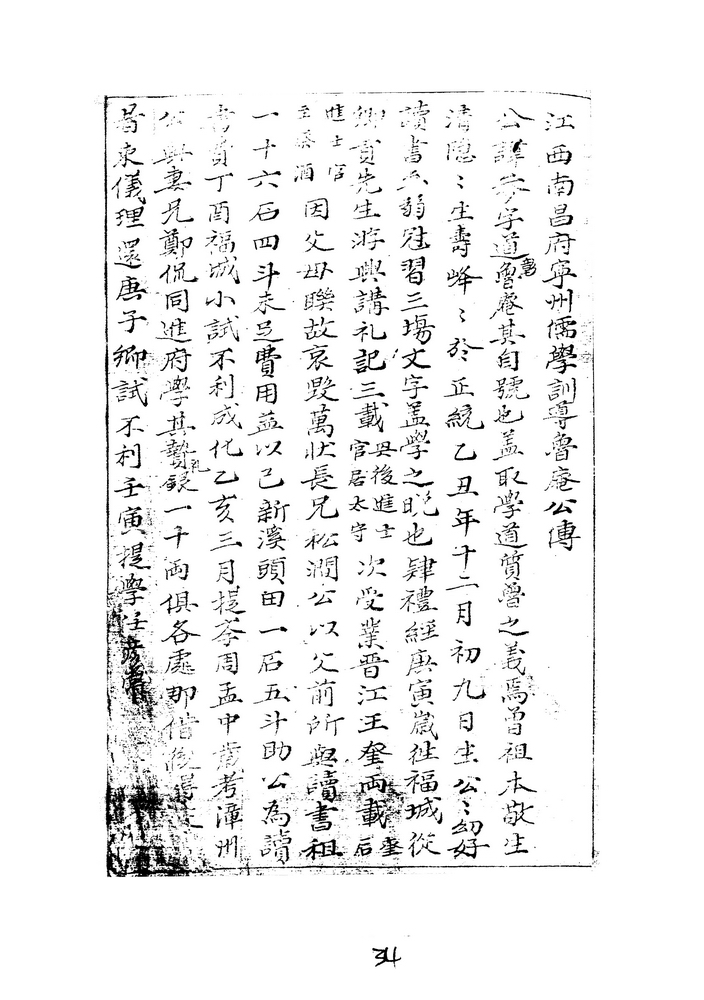 江西南昌府寧州儒學訓導魯庵公傳
公諱 字道魯庵其自號也蓋取學道質魯之義焉曾祖本敬生
清隱〻生壽峰〻於正統乙丑年十二月初九日生公〻幼好
讀書 弱冠習三場文字蓋學之晚也肄禮經庚寅歲徃福城從
鄉貢先生游興講礼記三載 毋後進士官居太守 次受業晉江王奎兩載 奎后
進士官至 因父毋 故哀毀萬狀長兄松澗公以父前所與讀書租
一十六石四斗未足費用益以己新溪頭田一石五斗助公為讀
書費丁酉福城小試不利成化乙亥三月提 周孟中 考漳州
公與妻兄鄭侃同進府學其贄 銀一千兩俱各處那借
易束儀理還庚子鄉試不利壬寅提學任彦常
34